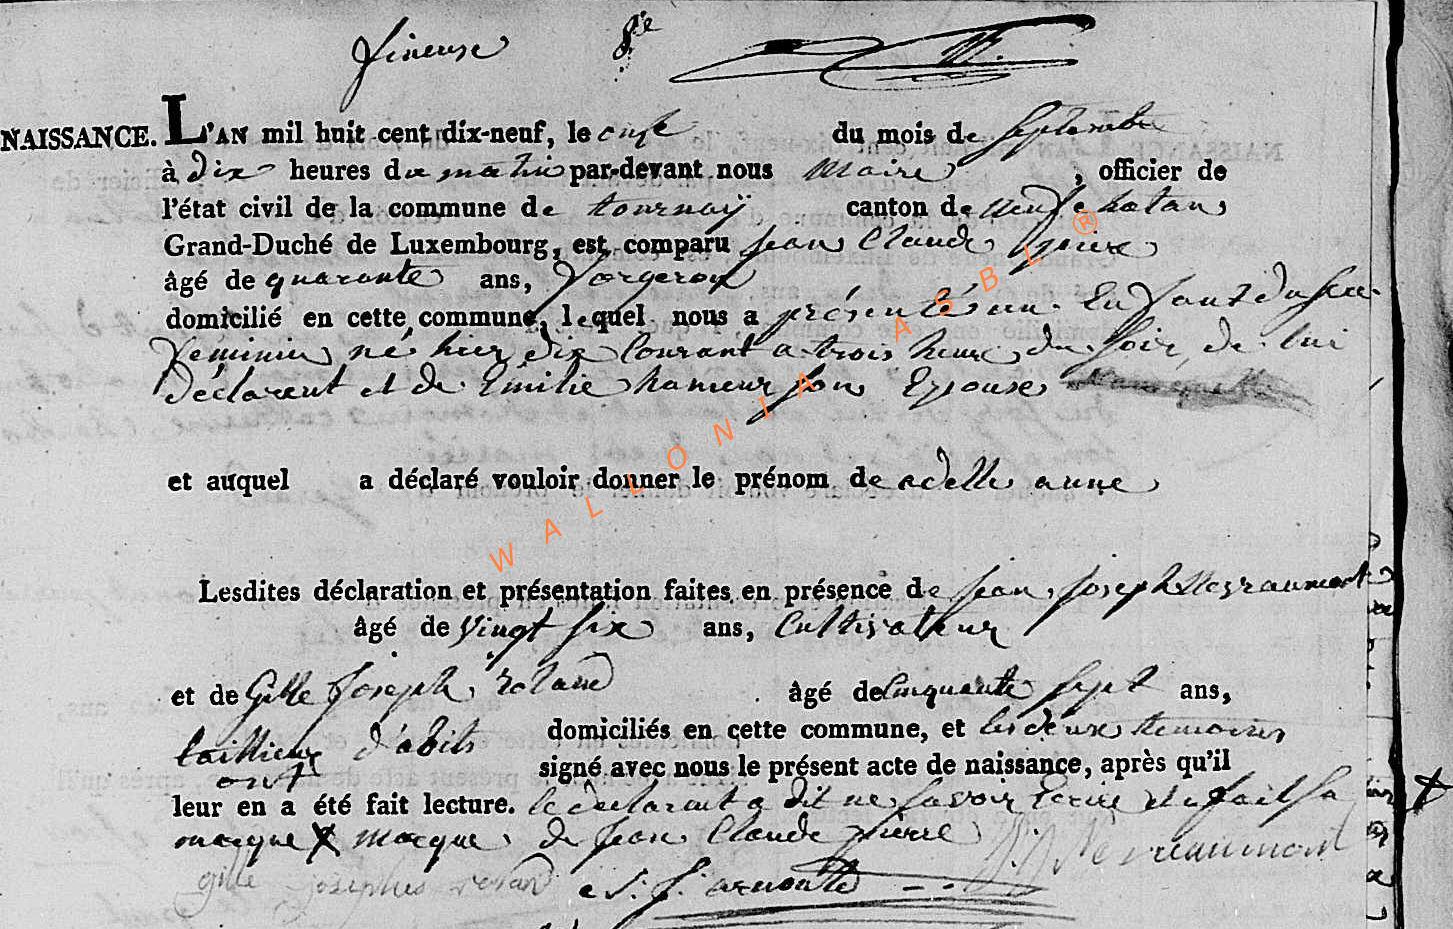 fineuse 8e
NAISSANCE. L'AN mil huit cent dix-neuf, le onze du mois de septembre
à dix heures du matin par-devant nous Maire, officier de
l'état civil de la commune de tournaÿ canton de neufchatau
Grand-Duché de Luxembourg, est comparu jean Claude
âgé de quarante ans, forgeron
domicilié en cette commune, lequel nous a présenté un Enfant du sexe
féminin né hier dix Courant a trois heure du soir, de lui
déclarent et de Emilie hameur son Epouse
et auquel a déclaré vouloir donner le prénom de adelle anne
Lesdites déclaration et présentation faites en présence de jean joseph Neyraumont
âgé de vingt six ans, Cultivateur
et de Gille joseph roland âgé de Cinquante sept ans,
taillieur d'abits domiciliés en cette commune, et les deux temoins
ont signé avec nous le présent acte de naissance, après qu'il
leur en a été fait lecture. le déclarent a dit ne savoir Ecrire et a fait sa
marque X marque de jean Claude pierre
gille josephe roland
WALLONIA ASBL ®